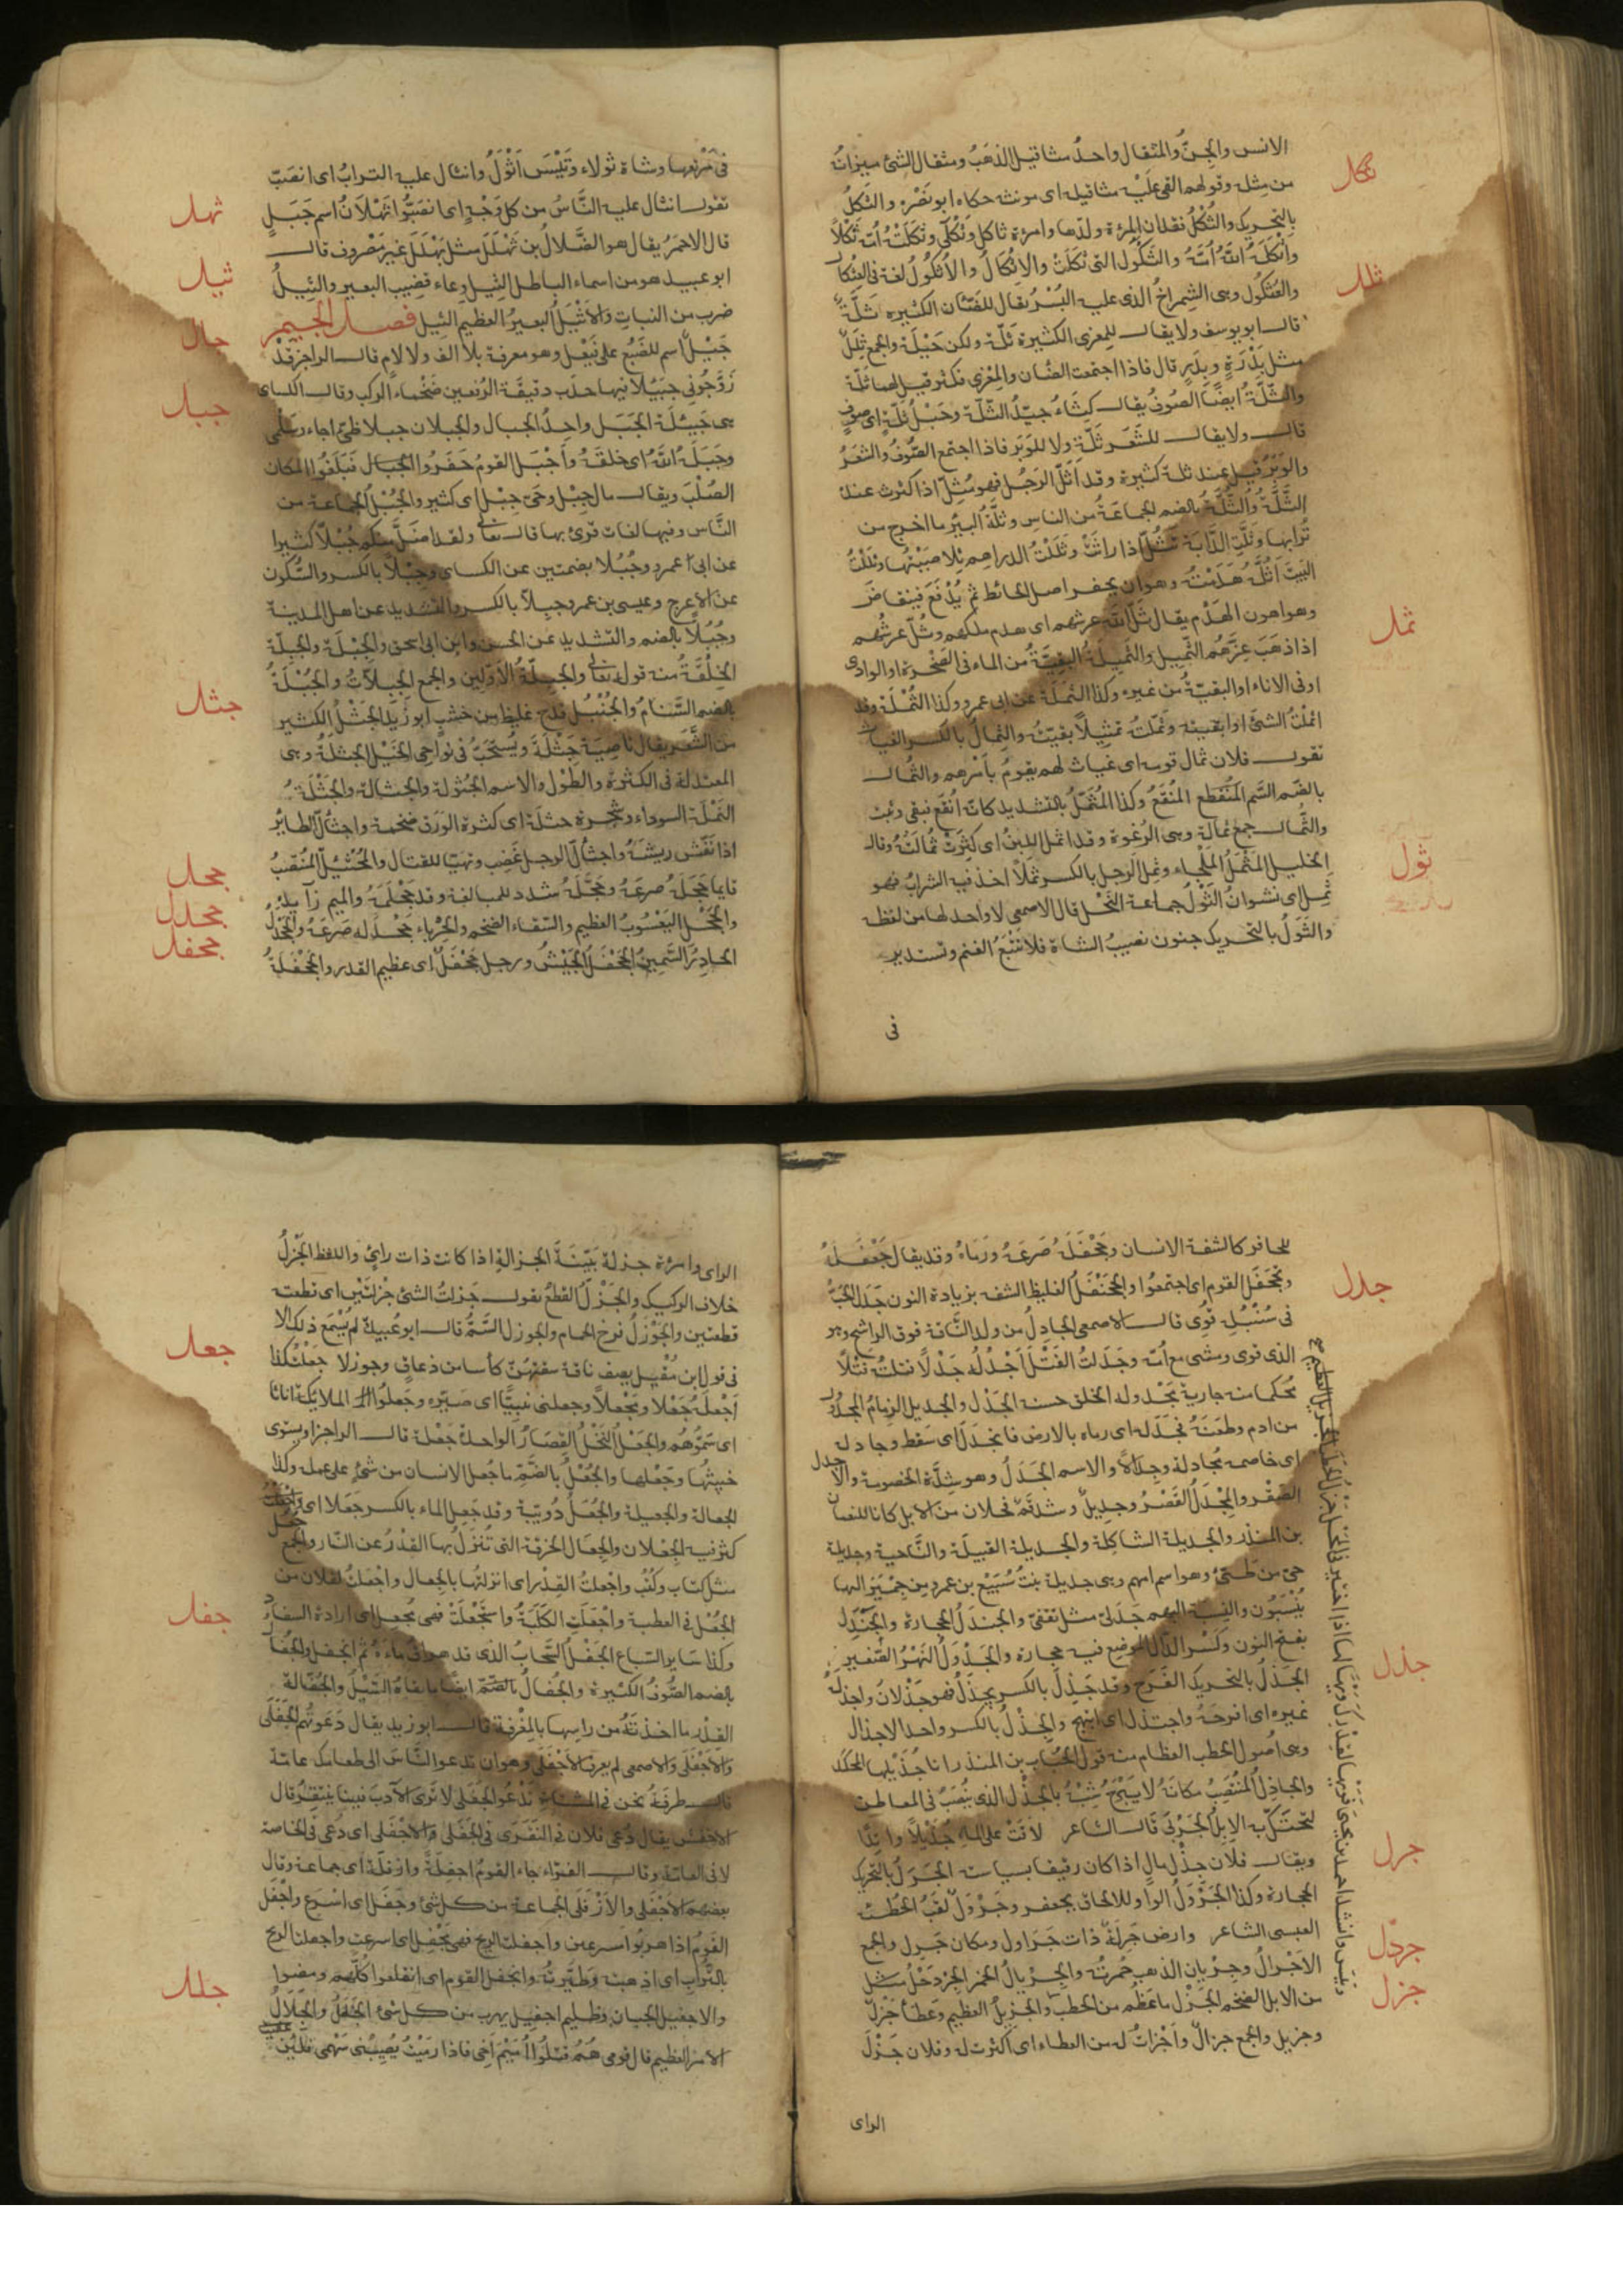 الانس والجنّ والمثقال واحدُ مثاقيل الذهب ومثقال الشئ ميزانُه
ثكل
من مثله وقولهم القى عَلَيْه مثاقيله اى مونته حكاه ابو نَصْر والثكلُ
بالتحريك والثُكْلُ فقدان المرءة ولدها وامرءة ثاكل وثَكْلَى وثكلَتْهُ اُمّه ثَكْلاً
وأثكلَهُ اللهُ اُمَّهُ والثَكُول التى ثكلَتْ والاِثكالُ والاُثْكُولُ لغة فى العِثكال
ثلل
والعُثكُول وهى الشِمراخُ الذى عليه البُسْرُ يقال للضَّئان الكثيره ثَلَّةٌ
قال ابو يوسف ولا يقال للمِعزى الكثيرة ثَلّة ولكن حَيْلَة والجمع ثِلَلٌ
مثل بَدْرَةٍ وبِدَرٍ قال فاذا اجتمعت الضّان والمِعْزى فكثرتا قيل لهما ثلّة
والثَّلَّةُ ايضًا الصُوفُ يقال كِسَاءُ جيّدُ الثَّلّة وحَبْلُ ثَلَّةٍ اى صوفٍ
قال ولا يقال للشَّعَر ثَلَّة ولا للوَبَر فاذا اجتمع الصُّوفُ والشعَرُ
والوَبَرُ قيل عند ثلة كثيرة وقد اَثَلَّ الرَجُل فهو مُثِلّ اذا كثرت عنده
الثَّلَّةُ والثُّلَّةُ بالضم الجماعَةُ من الناس وثلّةُ البيُر ما اخرج من
تُرابها وثَلَّتِ الدَّابَة تَثُلُّ اذا راثَتْ وثَلَلْتُ الدراهم ثِلا صَبَبْتُها وثَلَلْتُ
البَيْتَ اَثُلُّهُ هَدَمْتُهُ وهو ان يحفر اصل الحائط ثم يُدْفَعَ فينقاضَ
ثمل
وهو اهون الهَدْم يقال ثَلَّ الله عرشهم اى هدم ملكهم وثُلَّ عرشُهم
اذا ذهَبَ عِزّهُم الثَّمِيل والثَميلَةُ البَقِيَّةُ من الماء فى الصَّخْرة او الوادى
اوفى الاناء او البقيّةُ من غيره وكذا الثَمَلَة عن ابى عمرو وكذا الثُمْلَة وقد
اثمَلْتُ الشئَ اى ابقيته وثمَّلتُ تمثيلاً بقيتُه والثِمالُ بالكسر الغياث
تقول فلان ثمال قومه اى غياث لهم يقومُ بأَمْرهم والثُمال
بالضّم السَّم المنُقَع وكذا المُثَمَّلُ بالتشديد كانّه اُنْقع فبقى وثبت
ثول
والثُّمال جمع ثمالة وهى الرُغوة وقد اثمل اللبنُ اى كثرَتْ ثُمالَتُهُ وقال
الخليل المَثمَلُ المَلْجاء وثمل الرَجل بالكسر ثملاً اخذ فيه الشرابُ فهو
ثَمِل اى نشوانُ الثَوْلُ جماعة النَحْل قال الاصمعى لا واحد لها من لفظه
والثَوَلُ بالتحريك جنون نصيبُ الشاة فلا تَتْبَعُ الغنم وتستدير
فى
فى مَرْتعها وشاة ثولاء وتَيْسَ اَثْوَلُ وانثال عليه الترابُ اى انصَبّ
ثهل
تقول انثال عليه النَّاسُ من كل وَجْهٍ اى انصَبُّوا ثَهْلاَنُ اسم جَبَلٍ
قال الاحمَرُ يقال هو الضَّلالُ بن ثَهْلَلَ مثل بَهْلَلَ غير مَصْروف قال
ثيل
ابو عبيد هو من اسماء الباطل الثِيل وِعاء قضيب البعير والثِيلُ
ضرب من النبات وَالاَثْيَلُ البعيرُ العظيم الثيل فصل الجيم
جال
جَيْئَلٌ اسم للضَبُع على فَيْعَل وهو معرفة بلا الف ولا لام قال الراجز قَدْ
جبل
زَوَّجُونى جيئلا فيها حدَب دقيقَة الرُفغين ضَخْماء الركب وقال الكساى
هى جَيئلَة الجَبَل واحِدُ الجبال والجبلان جبلا طَىّ اجاء وسَلْمى
وجَبَلَهُ اللهُ اى خلقَهُ وأَجْبَل القومُ حَفَروا الجبال فبَلَغُوا المكان
الصُلْبَ ويقال مال جِبْل وحَىّ جِبْل اى كثير والجُبْلُ الجماعة من
النَّاس وفيها لغات قرئ بها قال تعالى ولقد اضلَّ منكم جُبْلاً كثيرا
عن ابى عمرو وجُبُلا بضمتين عن الكساى وجِبْلاً بالكسر والسُّكون
عن الاعرج وعيسى بن عمر وجِبِلاّ بالكسر والتشديد عن اهل المدينة
وجُبُلاّ بالضم والتشديد عن الحسن وابن ابى اسحق والجِبْلَة والجِبِلّة
جثل
الخِلْقَةُ منه قوله تعالى والجبِلّةَ الأوّلين والجمع الجِبِلاّتُ والجُبْلَةُ
بالضم السَّنامُ والجُنْبُل قدَح غليظ من خشب ابو زَيد الجَثْلُ الكثير
من الشَّعَر يقال ناصِيَة جَثْلَة ويُسْتحَبُّ فى نواحِى الخَيْل الجثلَةُ وهى
المعتدلة فى الكثرة والطَوْل والاسم الجُثُولة والجَثالة والجَثْلَةُ
النَمْلَة السوداء وشجرة جثلَة اى كثرة الورَق ضخمة واجثَألَّ الطايُر
جحل
اذا نَفَش ريشَهُ واجثألّ الرجل غَضِب وتهيّا للقتال والمُجْثَئلّ المُنْتَصِبُ
جحدل
قايما جَحَلَهُ صرعَهُ وجحَّلَهُ شدد للمبالغة وقد جَحْلَمَهُ والميم زآيدةٌ
جحفل
والجَحْل اليَعْسُوبُ العظيم والسّقاء الضخم والحِرْباء جَحْدَله صَرَعَهُ والجَحْدَلُ
الحادِرُ السَّمِينُ الجَحْفَلُ الجَيْشُ ورجل جَحْفَلٌ اى عظيم القدر والجَحْفَلَةُ
للحافر كالشفة الانسان وجَحْفَلَهُ صَرعَهُ ورَمَاهُ وقد يقال جَعْفَلَهُ
جدل
وتجَحْفَل القوم اى اجتمعُوا والجَحَنْفَلُ الغليظ الشفه بزيادة النون جَدَل الحَبُّ
فى سُنْبُلِه قوِى قال الاصمعى الجادِلُ من ولد النَّاقة فوق الراشح وهو
الذى قوى ومشى مع اُمّه وجَدَلتُ الفَتْلَ اَجْدُلُه جَدْلاً فتلتُه فتْلاً
مُحكما منه جاريةٌ مجْدوله الخلق حسنه الجَدْل والجديل الزمامُ المجْدُول
من ادم وطعَنَهُ فجَدّلَه اى رماه بالارض فانجَدَل اى سَقط وجادله
اى خاصمه مُجادلة وجِدالاً والاسم الجَدَلُ وهو شدَّة الخصومة والاجدل
الصَقْر والمِجْدَلُ القَصْرُ وجديلٌ وشدقَمٌ فحلان من الابل كانا للنعمان
بن المنذر والجديلة الشاكلة والجديلة القبيلَة والنَّاحية وجديلة
حىّ من طَىّئ وهو اسم امهم وهى جديلة بنتُ سُبَيْع بن عمرو بن حِمْيَر اليها
يُنْسَبُون والنسبة اليهم جَدَلىّ مثل ثقفىّ والجندلُ الحجارة والجَنَدِل
بفتح النون وكسر الدّال الموضع فيه حجارة والجَدْوَلُ النهْرُ الصَّغير
جذل
الجَذَلُ بالتحريك الفَرَح وقد جَذِلَ بالكسر يجذَلُ فهو جَذْلانُ واجذلَهُ
غيره اى افرحَهُ واجتذل اى ابتهج والجِذْلُ بالكسر واحد الاجذال
وهى اُصُول الحطب العظام منه قول الحُبَاب بن المنذر انا جُذَيْلُها المحكّكُ
والجاذِلُ المنْتَصِبُ مكانَهُ لا يَبْرَحُ شبّهُ بالجِذْل الذى يُنصَبُ فى المعاطن
جرل
لتَحْتَكّ به الاِبِلُ الجَرْبَى قال الشاعر لاقَتْ على الماءِ جُذَيْلاً واتِدًا
ويقال فلان جِذْل مالٍ اذا كان رفيقا بسياسته الجَرَلُ بالتحريك
الحجارة وكذا الجَرْوَلُ الواو للالحاق بجعفر وجَرْوَلٌ لقَبُ الحُطَيئَه
جردل
العبسى الشاعر وارض جَرِلَةٌ ذات جَرَاول ومكان جَرِل والجمع
الاجْرالُ وجِرْيان الذهب حُمرتُه والجِرْيالُ الخمر الجِردَحْلُ مثل
جزل
من الابل الضخم الجَزْل ما عَظُم من الحطب والجزِيلُ العظيم وعَطَأ جَزْلٌ
وجزيل والجمع جزالٌ وأَجْزلتُ له من العطاء اى اكثرت له وفلان جَزْلُ
الراى
الراى وامرءة جزلة بَيّنَةُ الجزالةِ اذا كانت ذات راىٍ واللفظ الجَزْلُ
خلاف الركيك والجَزْلُ القَطْع تقول جَزلتُ الشئ جزْلتَيْن اى قطعته
جعل
قطعتين والجَوْزَلُ فرخ الحمام والجوزل السَّمُّ قال ابو عُبيدة لم يُسْمَع ذلك الا
فى قول ابن مُقْبِل يصف ناقة سقتهنّ كأسا من ذعاف وجوزلا جَعَلْتُ كذا
اَجْعلهُ جَعْلا ومَجْعلاً وجعلنى نبيًّا اى صَيّره وجَعلُوا الملائكة اناثا
اى سَمَّوْهُم والجَعْلُ النَخْلُ القِصَارُ الواحدة جَعْلة قال الراجز او يستوى
جَثيثُها وجَعْلها والجُعْلُ بالضَّمّ ما جعل للانسان من شئٍ على عمله وكذا
الجعالة والجعيلة والجُعَلُ دُويبّة وقد جَعِل الماء بالكسر جَعَلا اى
كثر فيه الجِعْلان والجِعَال الخرقة التى تُنزَلُ بها القِدْرُ عن النّار والجمع جعل
مثل كتاب وكُتُب واجعلتُ القِدْر اى انزلتُها بالجعال واجْعَلتُ لفلان من
جفل
الجُعْل فى العطية واجْعَلَتِ الكلبَةُ واستَجْعَلَتْ فهى مُجعِل اى ارادة السِفاد
وكذا سَاير السّباع الجَفْلُ السَّحَابُ الذى قد هراق ماءَهُ ثم انجفل والجُفالُ
بالضم الصُّوفُ الكثيرة والجُفالُ بالضّمّ ايضًا ما نفاهُ السَّيْلُ والجُفَالة
القِدْر ما اخذتَهُ من راسها بالمِغْرفة قال ابو زيد يقال دَعَوتُهُم الجَفَلَى
وَالاَجْفَلَى والاصمعى لم يعرف الاَجْفَلَى وهو ان تدعوا النَّاسَ الى طعامك عامّة
قال طرفةُ نحن فى المشتاة نَدْعُو الجَفَلَى لا ترى الآدِبَ فينا يَنتقِرُ قال
الاخفش يقال دُعِىَ فلان فى النقَرَى لا فى الجَفَلَى والاجْفَلى اى دُعى فى الخاصة
لا فى العامّة وقال الفرّاء جاء القومُ اجفَلَةً وازفَلَةً اى جماعة وقال
بعضهم الاَجْفَلَى والاَزْفَلَى الجماعة من كل شئ وجَفَل اى اسْرع واجفل
القَومُ اذا هربُوا مُسرعين واجفلت الريح فهى مُجْفِل اى اسرعت واجفلت الريح
جلل
بالتُرابِ اى اذهبته وَطيَّرتُه وانجفل القوم اى انقلعوا كُلُّهم ومضوا
والاجفيل الجبان وظليم اجفيل يهرب من كل شئ الجَلَلُ والجَلاَلُ
الامر العظيم قال قومى هُمُ قتلُوا اُمَيْمَ اَخى فاذا رَمَيْتُ يُصِيبُنى سَهْمى فلئن